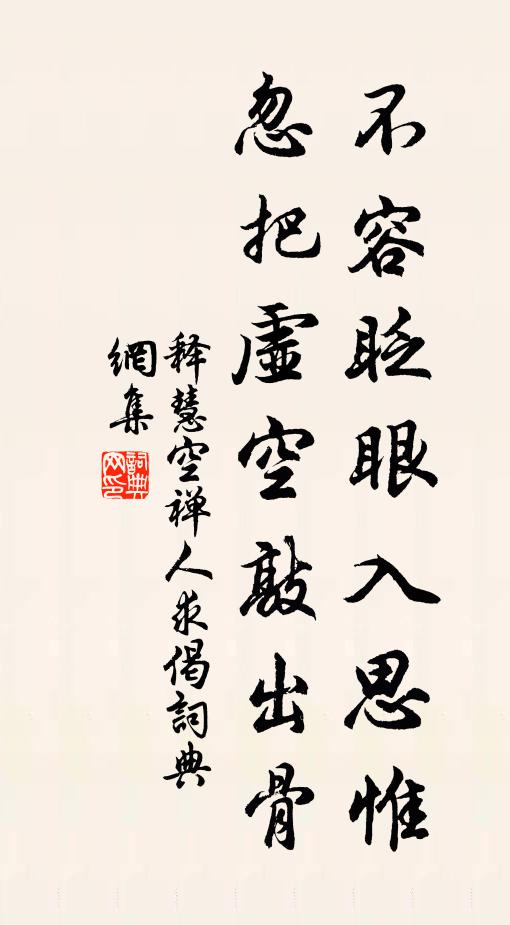 不容眨眼入思惟
忽把虛空敲出骨
釋慧空禅人求偈詞典
網集
詞典
网印